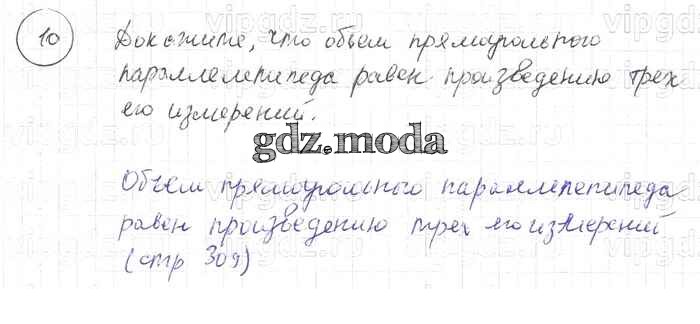 10
Докажите, что объем прямоугольного
параллелепипеда равен произведению трех
его измерений.
gdz.moda
Объем прямоугольного параллелепипеда
равен произведению трех его измерений
(стр 309)